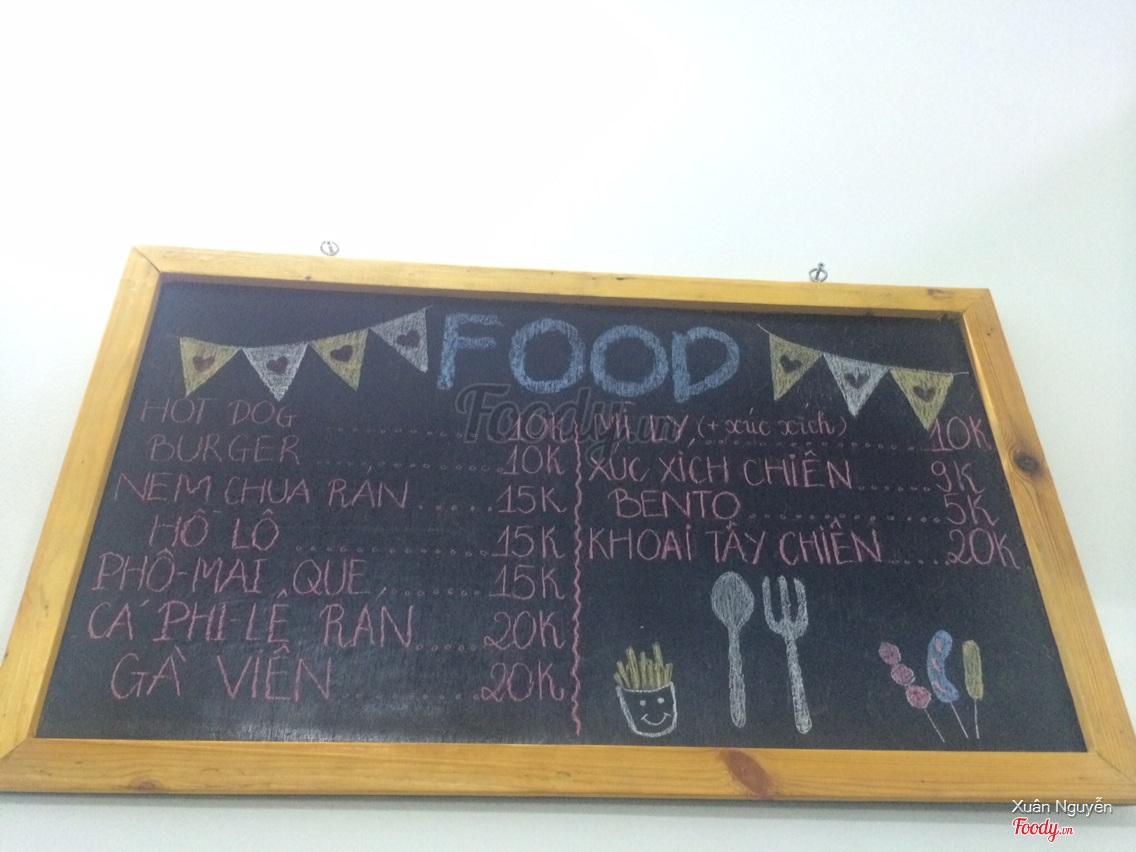 FOOD
HOT DOG .......... 10K
BURGER .......... 10K
NEM CHUA RÁN ...... 15K
HỒ LÔ .......... 15K
PHÔ-MAI QUE ...... 15K
CÁ PHI-LÊ RÁN ..... 20K
GÀ VIÊN .......... 20K
MÌ LY (+ xúc xích) .......... 10K
XÚC XÍCH CHIÊN ...... 9K
BENTO .......... 5K
KHOAI TÂY CHIÊN .... 20K
Foody.vn
Xuân Nguyễn
Foody.vn